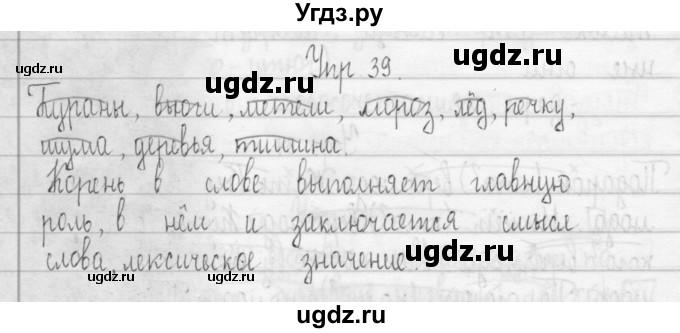 Угдз.ру
ugdz.ru ugdz.ru Упр 39. ugdz.ru
Бураны, вьюги, метели, мороз, лёд, речку,
шума, деревья, тишина.
ugdz.ru ugdz.ru
Корень в слове выполняет главную
роль, в нём и заключается смысл
слова, лексическое значение.
ugdz.ru ugdz.ru ugdz.ru
ugdz.ru